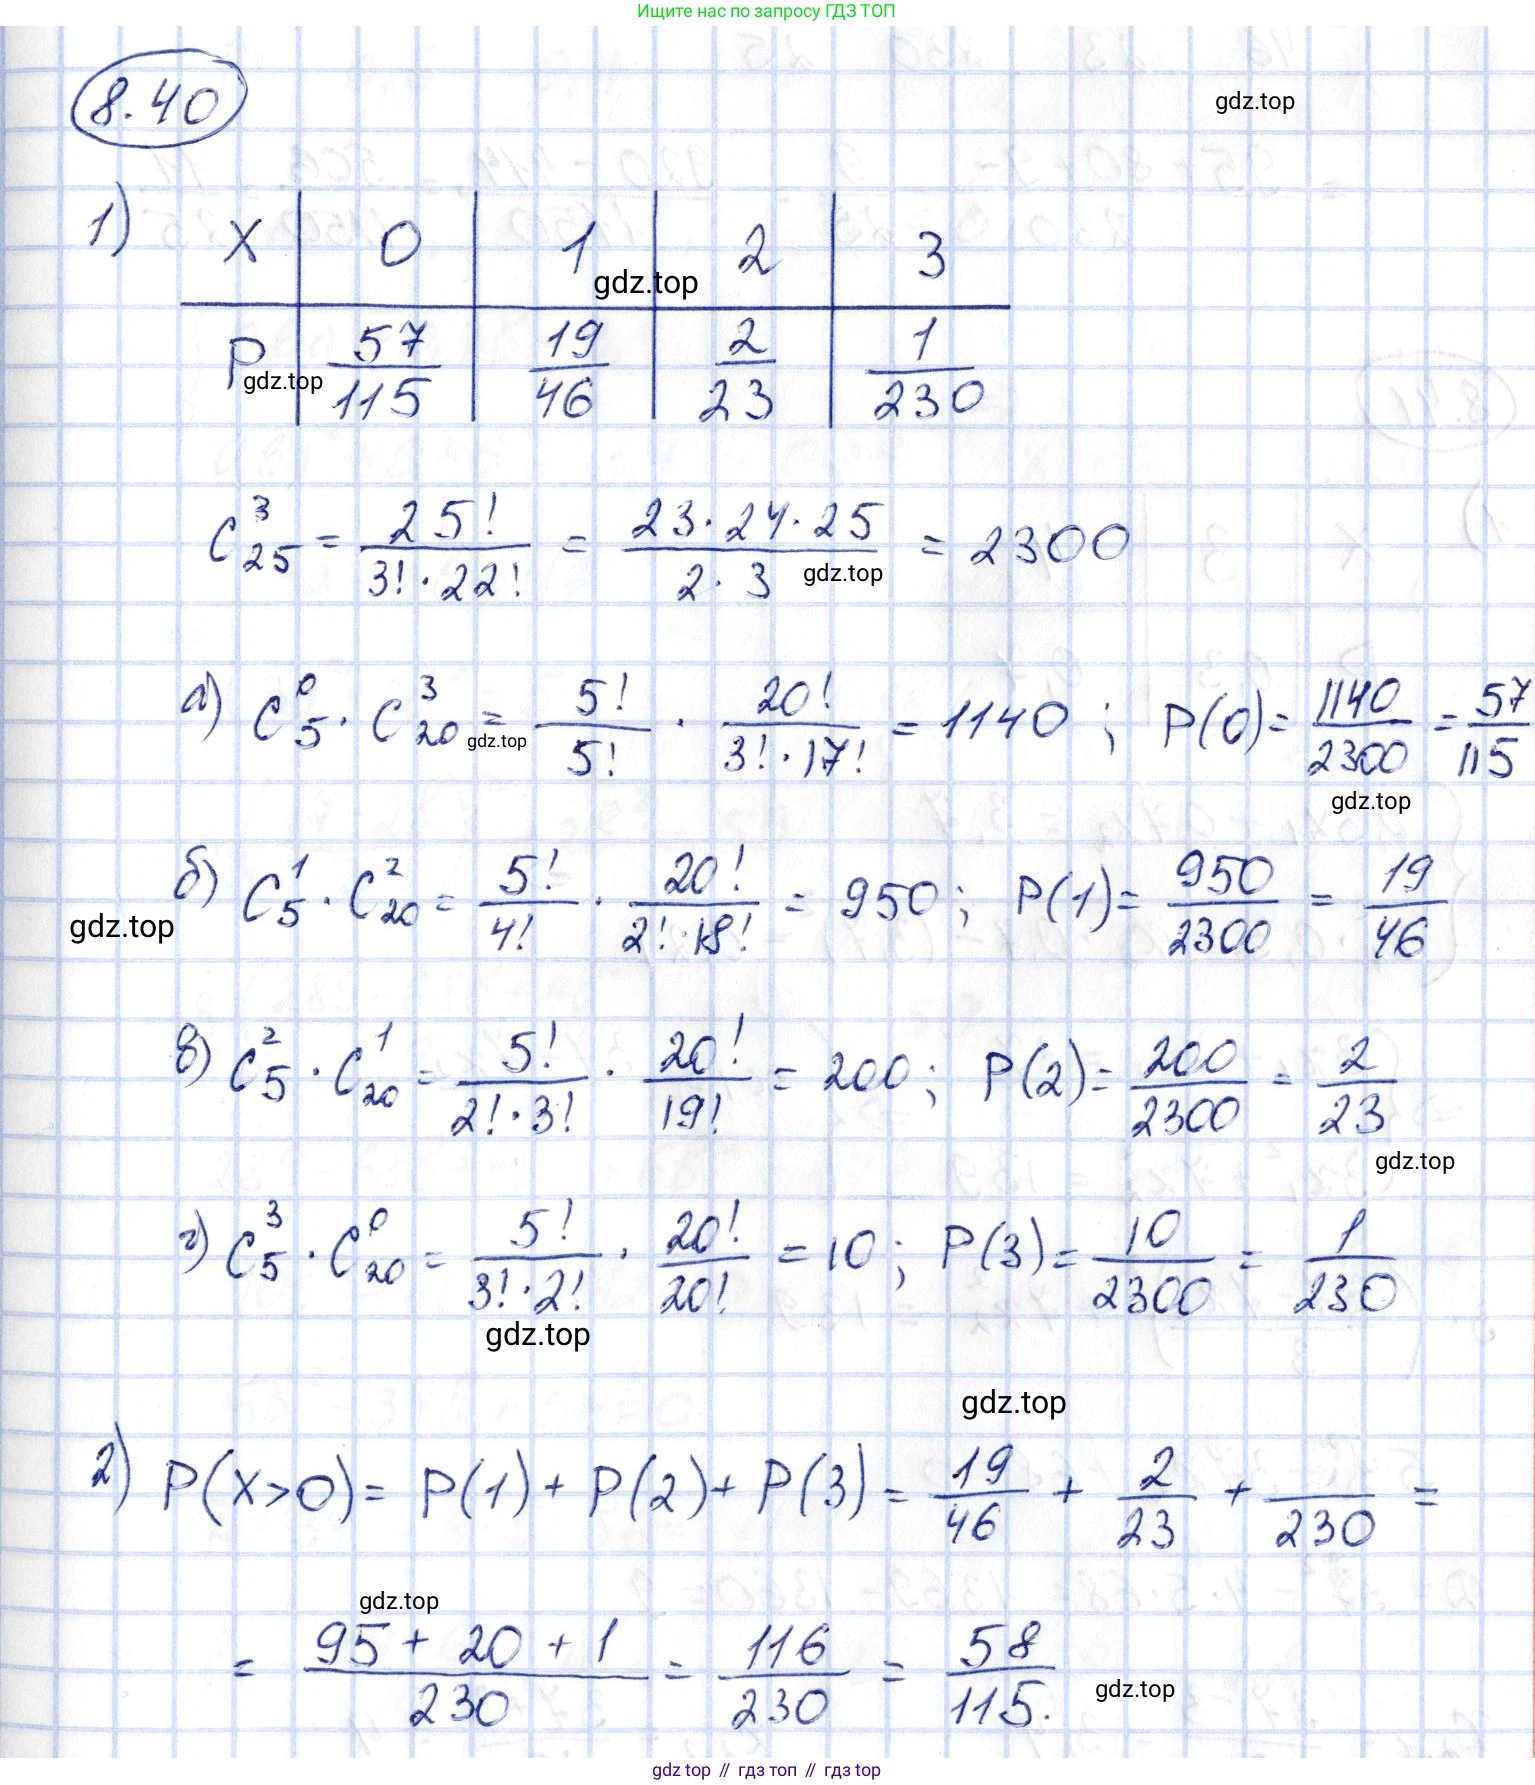 Ищите нас по запросу ГДЗ ТОП
8.40
gdz.top
1) X | 0 | 1 | 2 | 3
gdz.top
P | 57/115 | 19/46 | 2/23 | 1/230
gdz.top
C_25^3 = 25!/(3! · 22!) = (23 · 24 · 25)/(2 · 3) = 2300
gdz.top
а) C_5^0 · C_20^3 = 5!/5! · 20!/(3! · 17!) = 1140 ; P(0) = 1140/2300 = 57/115
gdz.top
gdz.top
б) C_5^1 · C_20^2 = 5!/4! · 20!/(2! · 18!) = 950 ; P(1) = 950/2300 = 19/46
gdz.top
в) C_5^2 · C_20^1 = 5!/(2! · 3!) · 20!/19! = 200 ; P(2) = 200/2300 = 2/23
gdz.top
г) C_5^3 · C_20^0 = 5!/(3! · 2!) · 20!/20! = 10 ; P(3) = 10/2300 = 1/230
gdz.top
gdz.top
2) P(X>0) = P(1) + P(2) + P(3) = 19/46 + 2/23 + /230 =
gdz.top
= (95 + 20 + 1)/230 = 116/230 = 58/115.
gdz.top
gdz top // гдз топ // gdz top